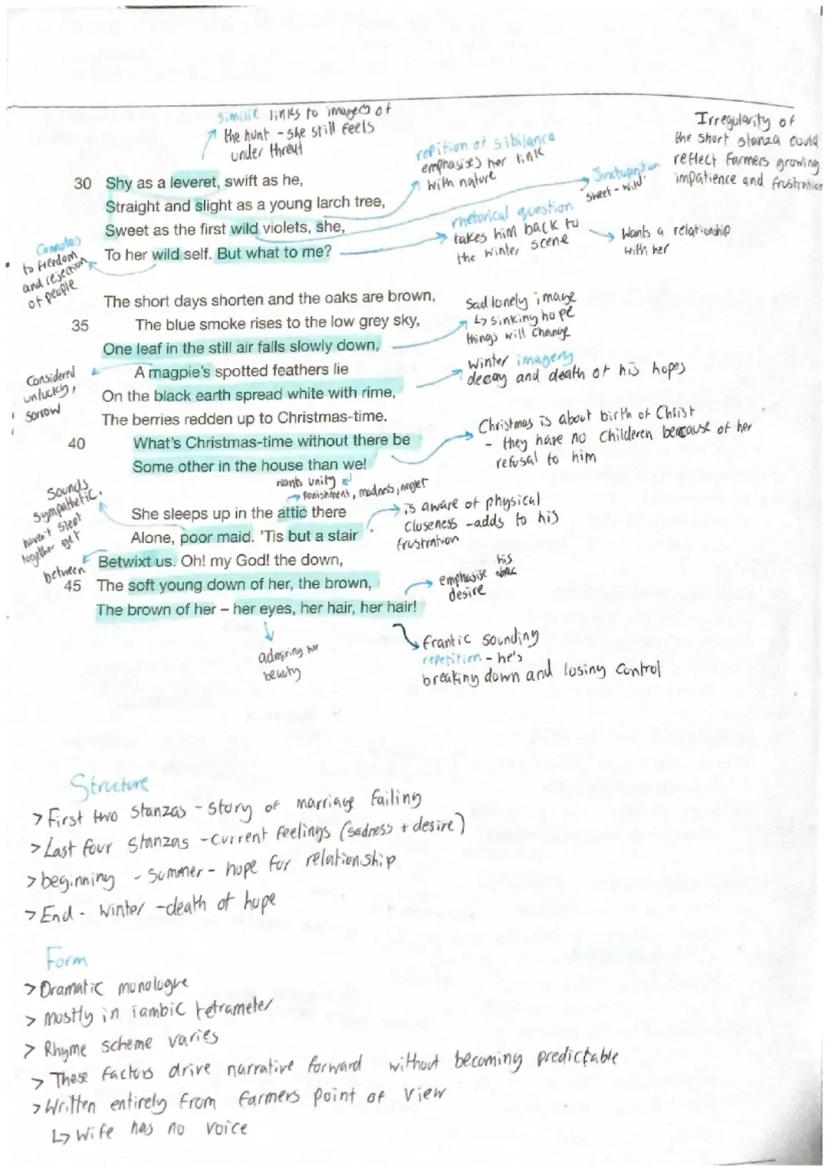 similie links to imagery of
the hunt - she still feels
under threat
repition of sibilance
emphasises her link
with nature
Juxtaposition
sweet - wild
Irregularity of
the short stanza could
reflect farmers growing
impatience and frustration
30 Shy as a leveret, swift as he,
Straight and slight as a young larch tree,
Sweet as the first wild violets, she,
To her wild self. But what to me?
Connotes
to freedom
and rejection
of people
rhetorical question
takes him back to
the winter scene
Wants a relationship
with her
The short days shorten and the oaks are brown,
35 The blue smoke rises to the low grey sky,
One leaf in the still air falls slowly down,
A magpie's spotted feathers lie
On the black earth spread white with rime,
The berries redden up to Christmas-time.
40 What's Christmas-time without there be
Some other in the house than we!
Sad lonely image
↳ sinking hope
things will change
Considered
unlucky,
sorrow
winter imagery
decay and death of his hopes
Christmas is about birth of Christ
- they have no childeren because of her
refusal to him
wants unity
punishment, madness, neglet
She sleeps up in the attic there
Alone, poor maid. 'Tis but a stair
Betwixt us. Oh! my God! the down,
45 The soft young down of her, the brown,
The brown of her – her eyes, her hair, her hair!
Sounds
sympathetic,
haven't slept
together yet
between
is aware of physical
closeness - adds to his
frustration
emphasise his
desire
admiring her
beauty
frantic sounding
repetition - he's
breaking down and losing control
Structure
> First two stanzas - story of marriage failing
> Last four stanzas - current feelings (sadness + desire)
> beginning - summer - hope for relationship
> End - winter - death of hope
Form
> Dramatic monologue
> mostly in iambic tetrameter
> Rhyme scheme varies
> These factors drive narrative forward without becoming predictable
> Written entirely from farmers point of view
↳ Wife has no voice